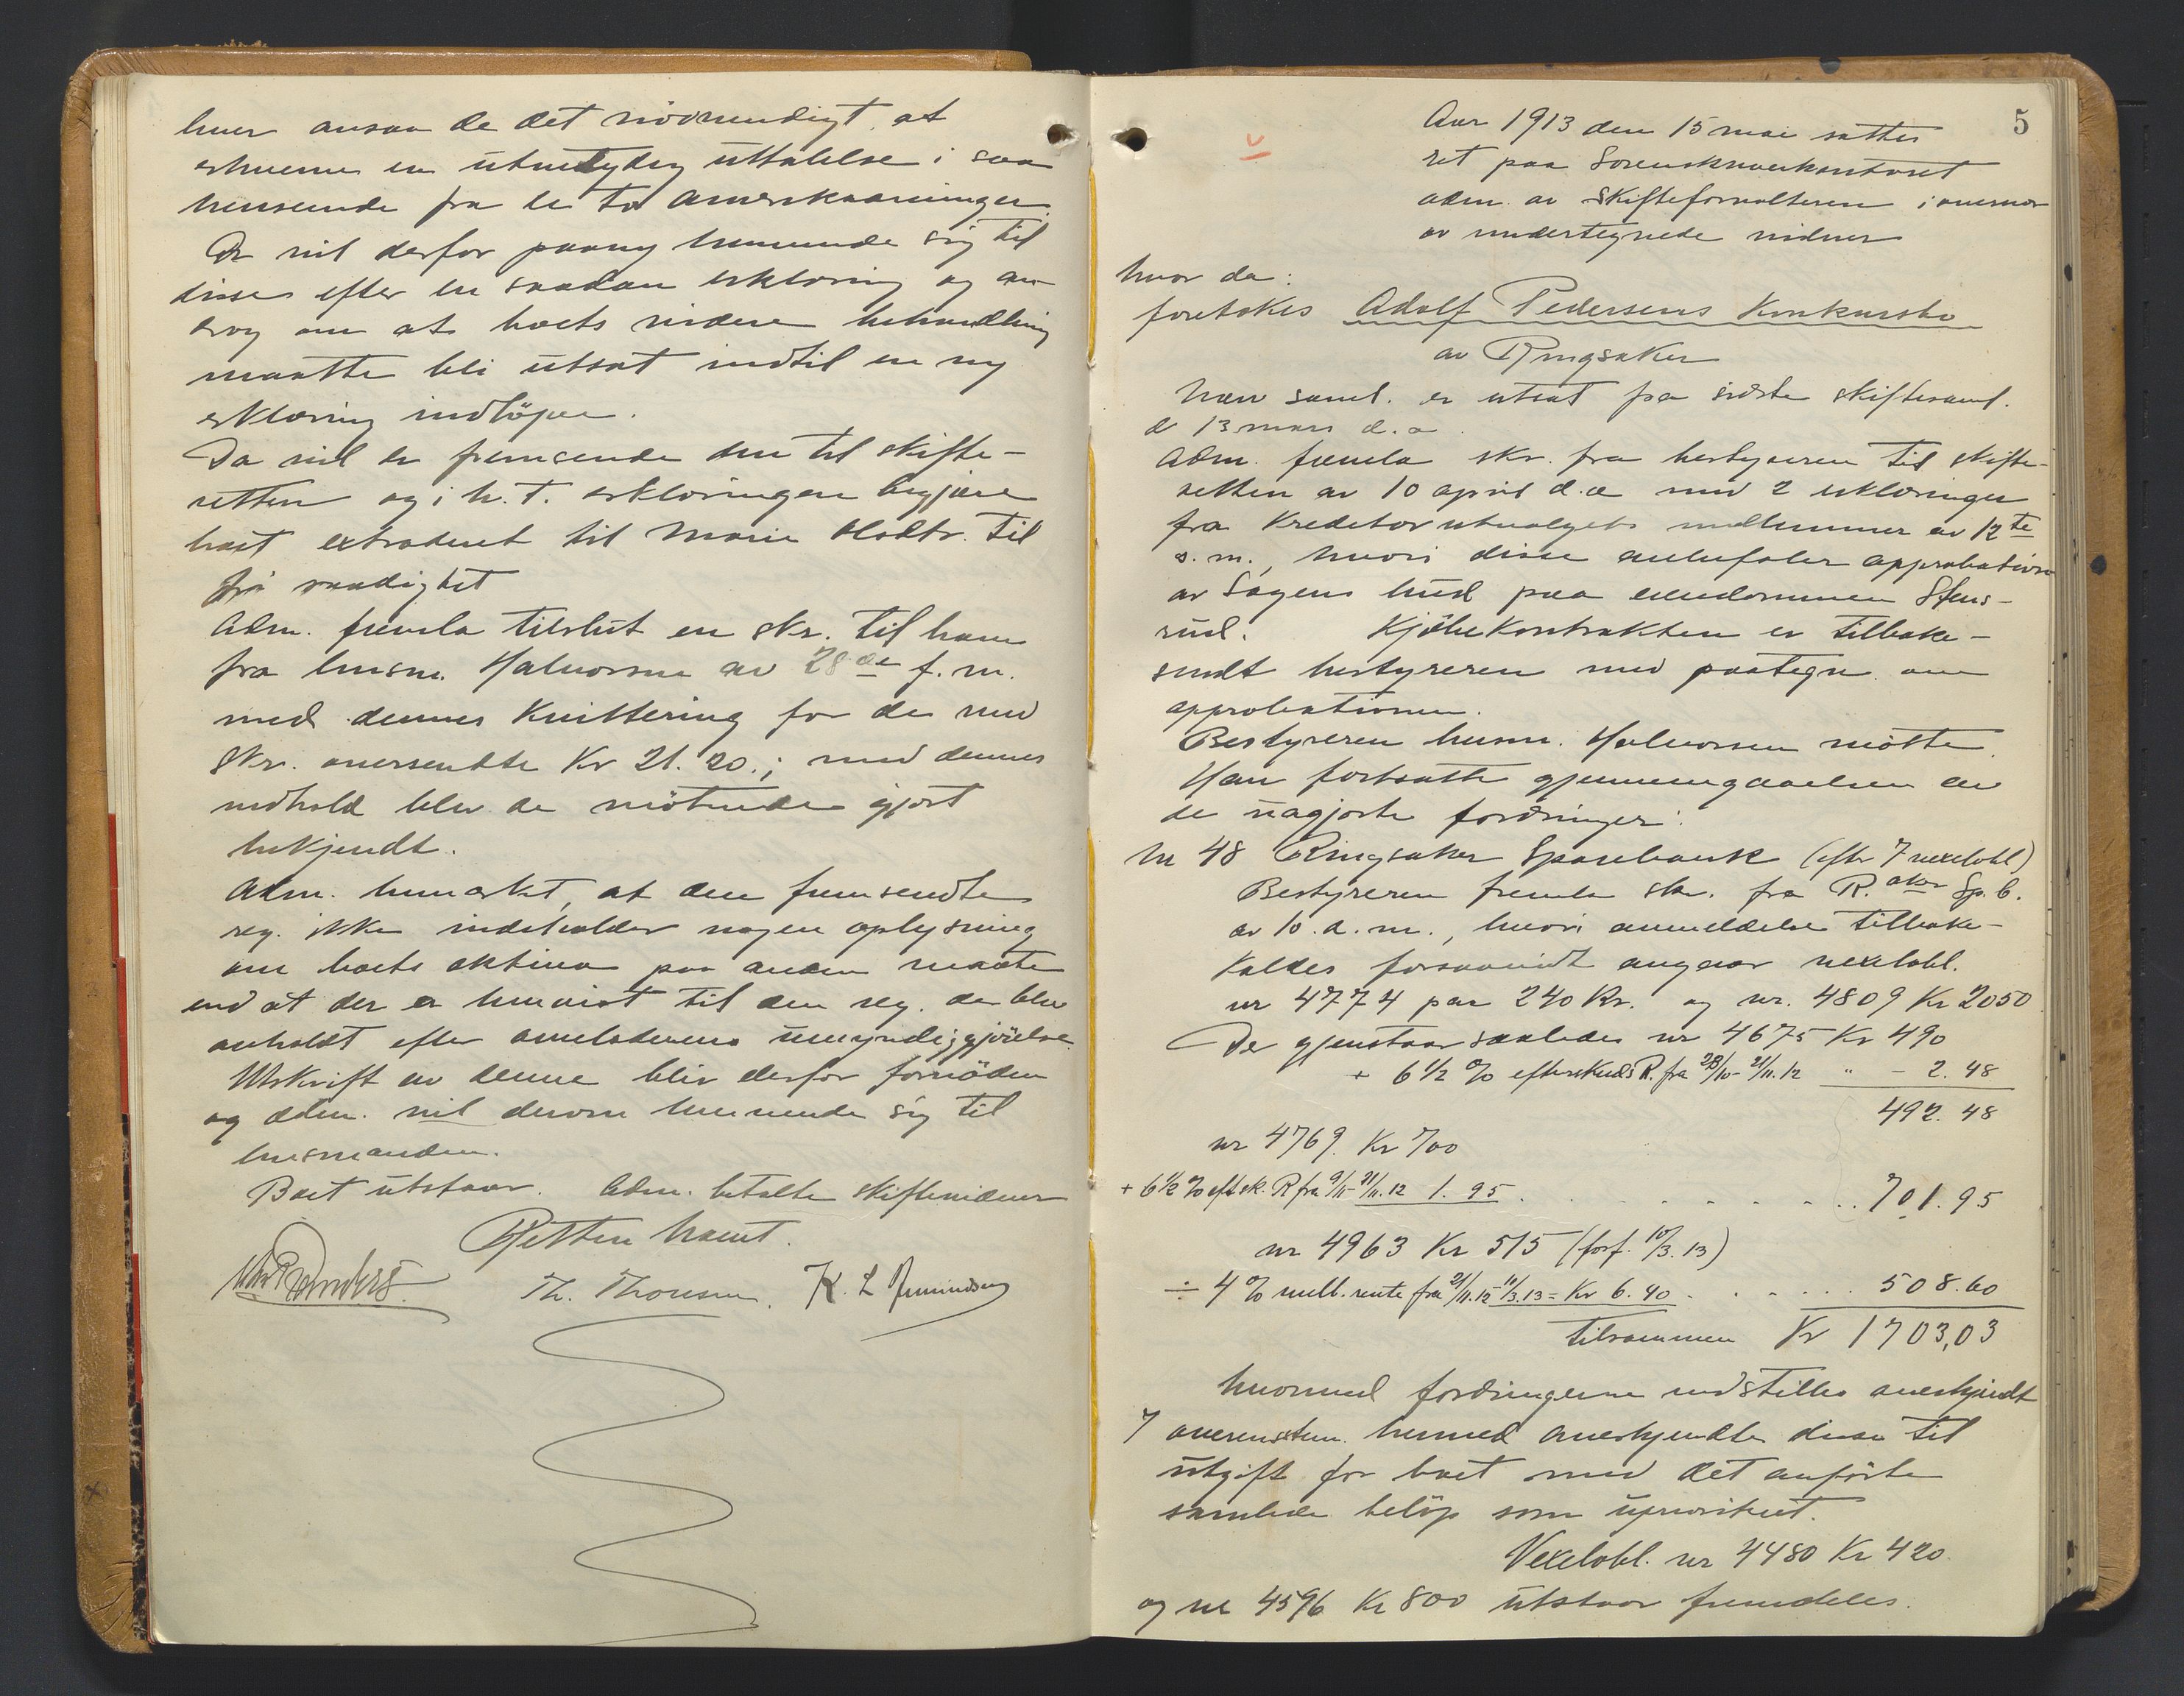 huer ansaa de det nödvendigt, at
erhverve en utvetydig uttalelse i saa
henseende fra de to amerikaaninger.
De vil derfor paany henvende sig til
disse efter en saadan erklæring og an-
drog om at boets videre behandling
maatte bli utsat indtil en ny
erklæring indlöper.
Da vil de fremsende den til skifte-
retten og i h. t. erklæringen begjære
boet extraderet til Marie Olsdtr. til
fri raadighet
Adm. fremla tilslut en skr. til ham
fra lensm. Halvorsen av 28de f. m.
med dennes kvittering for de med
skr. oversendte Kr 21.20.; med dennes
indhold blev de mötende gjort
bekjendt.
Adm. bemerket, at den fremsendte
reg. ikke indeholder nogen oplysning
om boets aktiva paa anden maate
end at der er henvist til den reg. der blev
avholdt efter avdödes umyndiggjörelse.
Utskrift av denne blir derfor fornöden
og adm. vil derom henvende sig til
lensmanden.
Boet utstaar. Adm. betalte skiftevidner
Retten hævet.
Th. Thonsen. K. L Amundsen
5
Aar 1913 den 15 mai sattes
ret paa Sorenskriverkontoret
adm. av skifteforvalteren i overvær
av undertegnede vidner
hvor da:
foretokes Adolf Pedersens Konkursbo
av Ringsaker
Nærv. saml. er utsat fra sidste skiftesaml.
d 13 mars d. a.
Adm. fremla skr. fra bestyreren til skifte-
retten av 10 april d. a med 2 erklæringer
fra Kreditorutvalgets medlemmer av 12te
s. m., hvori disse anbefaler approbation
av Sagens bud paa eiendommen Stens-
rud. Kjöbekontrakten er tilbake-
sendt bestyreren med paategn. om
approbationen.
Bestyreren lensm. Halvorsen mötte.
Han fortsatte gjennemgaaelsen av
de uagjorte fordringer:
Nr 48 Ringsaker Sparebank (efter 7 vexelobl)
Bestyreren fremla skr. fra R.aker Sp. b.
av 10. d. m., hvori anmeldelse tilbake-
kaldes forsaavidt angaar vexelobl.
nr 4774 paa 240 Kr. og nr. 4809 Kr 2050
Der gjenstaar saaledes nr 4675 Kr 490
+ 6 1/2 % efterskuds R. fra 28/10 - 21/11.12 " - 2.48
492.48
nr 4769. Kr 700
+ 6 1/2 % eftsk. R fra 9/11 - 21/11.12 1.95 . . . . . . . 701.95
nr 4963 Kr 515 (forf. 10/3.13)
÷ 4 % mell. rente fra 21/11.12 - 11/3.13 = Kr 6.40 . . . . . 508.60
tilsammen Kr 1703,03
hvormed fordringerne indstilles anerkjendt
I overenstem. hermed anerkjendtes disse til
utgift for boet med det anförte
samlede belöp som uprioritert.
Vexelobl. nr 4480 Kr 420
og nr 4596 Kr 800 utstaar fremdeles.